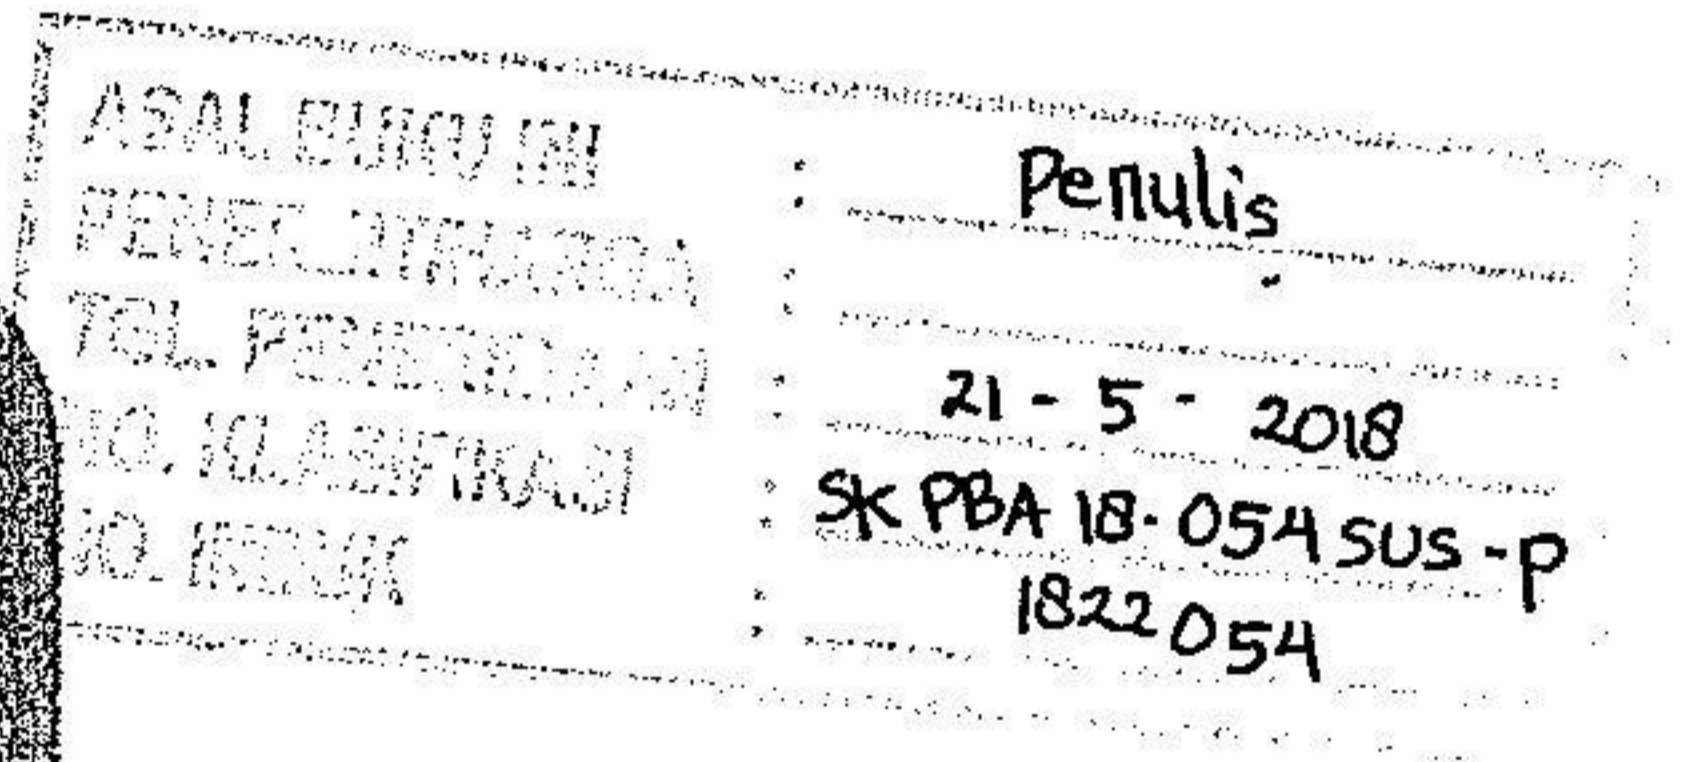 ASAL BUKU INI : Penulis
PENERBIT/HARGA : -
TGL. PENERIMAAN : 21 - 5 - 2018
NO. KLASIFIKASI : SK PBA 18.054 SUS - P
NO. INDUK : 1822054